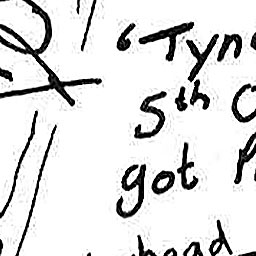 "Tyn
5th
got
head